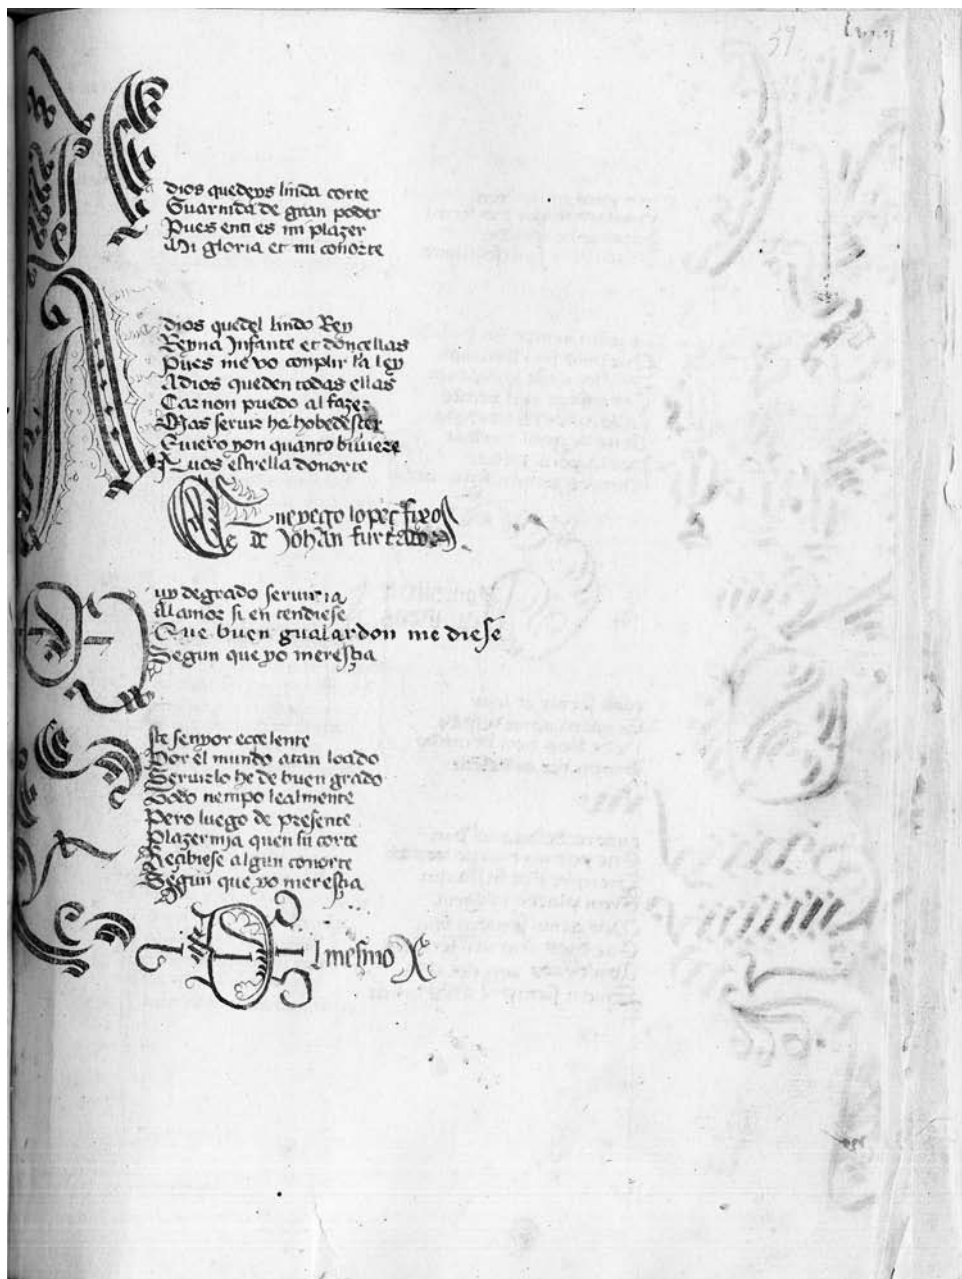 59
Adios quedeys linda corte
Guarnida de gran poder
Pues enti es mi plazer
Mi gloria et mi conorte
Adios quedel lindo Rey
Reyna Jnfante et doncellas
Pues me vo conplir la ley
Adios queden todas ellas
Car non puedo al fazer
Mas seruir he hobedesçer
Quiero yon quanto biuiere
A uos estrella donorte
Eneyego lopeç fixo
de Johan furtado
Muy degrado seruiria
Al amor si en tendiese
Que buen gualardon me diese
Segun que yo meresçia
Este senyor eccelente
Por el mundo atan loado
Seruirlo he de buen grado
Todo tiempo lealmente
Pero luego de presente
Plazermia quen su corte
Reçibiese algun conorte
Segun que yo meresçia
El mesmo